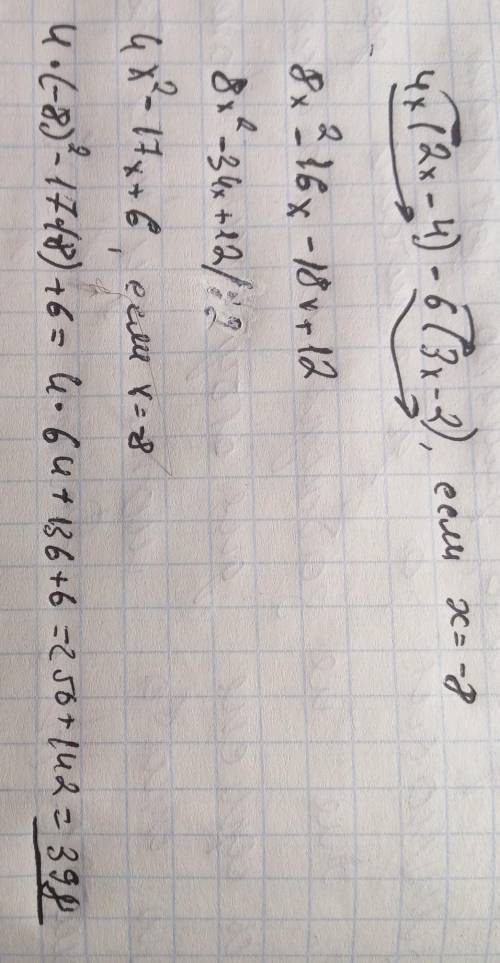 4x(2x-4)-6(3x-2), если x=-8
8x²-16x-18x+12
8x²-34x+12/:2
4x²-17x+6, если x=-8
4·(-8)²-17·(-8)+6=4·64+136+6=256+142=398